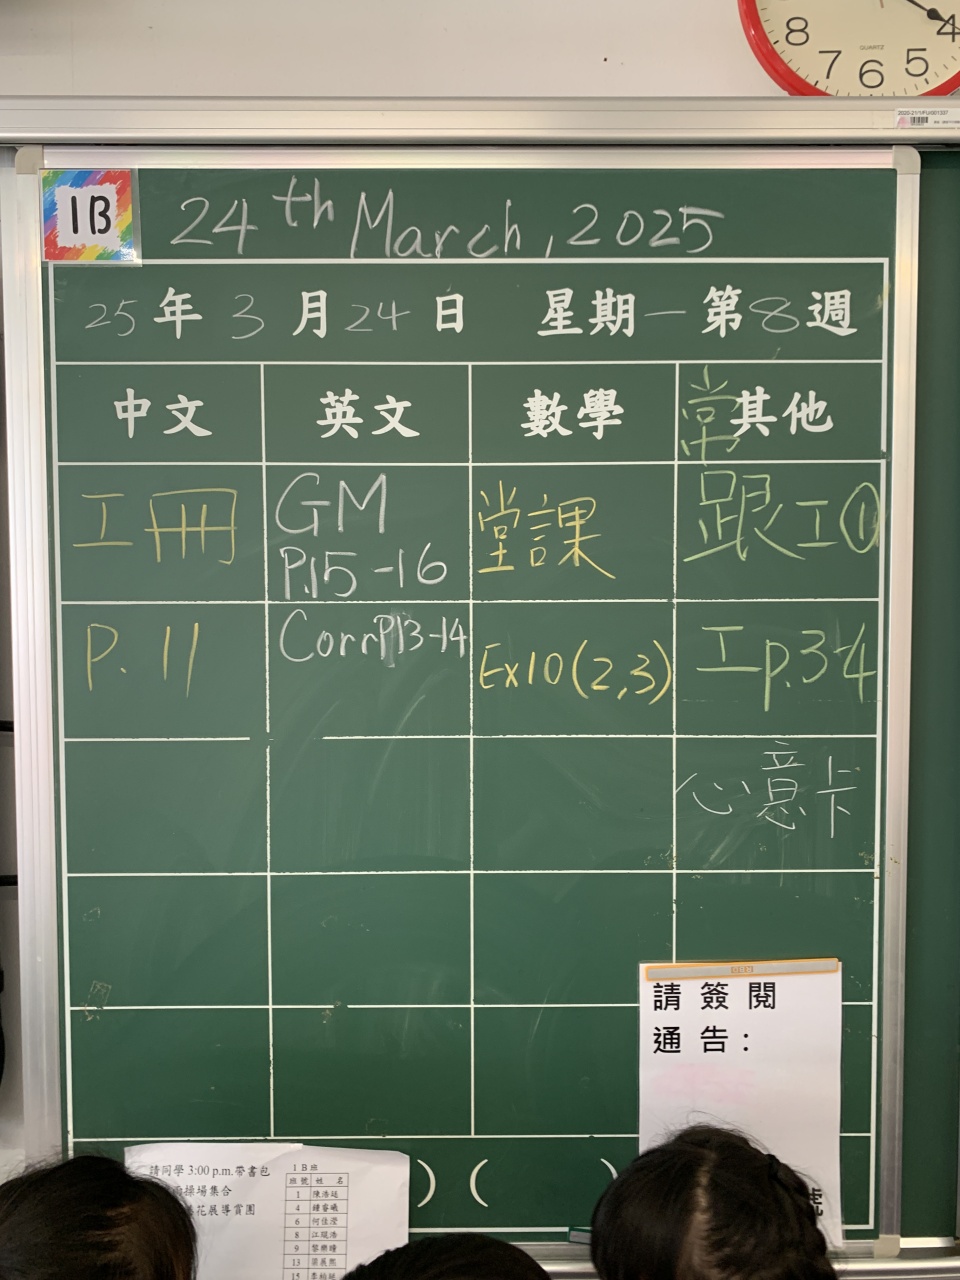 8 7 6 5 4
QUARTZ
1B
24th March, 2025
25年3月24日 星期一第8週
中文 英文 數學 常其他
工冊 GM P.15-16 堂課 跟工①
P.11 Corr P.13-14 Ex10(2,3) 工p.3-4
心意卡
請簽閱
通告:
) (
請同學 3:00 p.m.帶書包
操場集合
花展導賞團
1B班
班號 姓 名
1
4
6
8
9
13
15